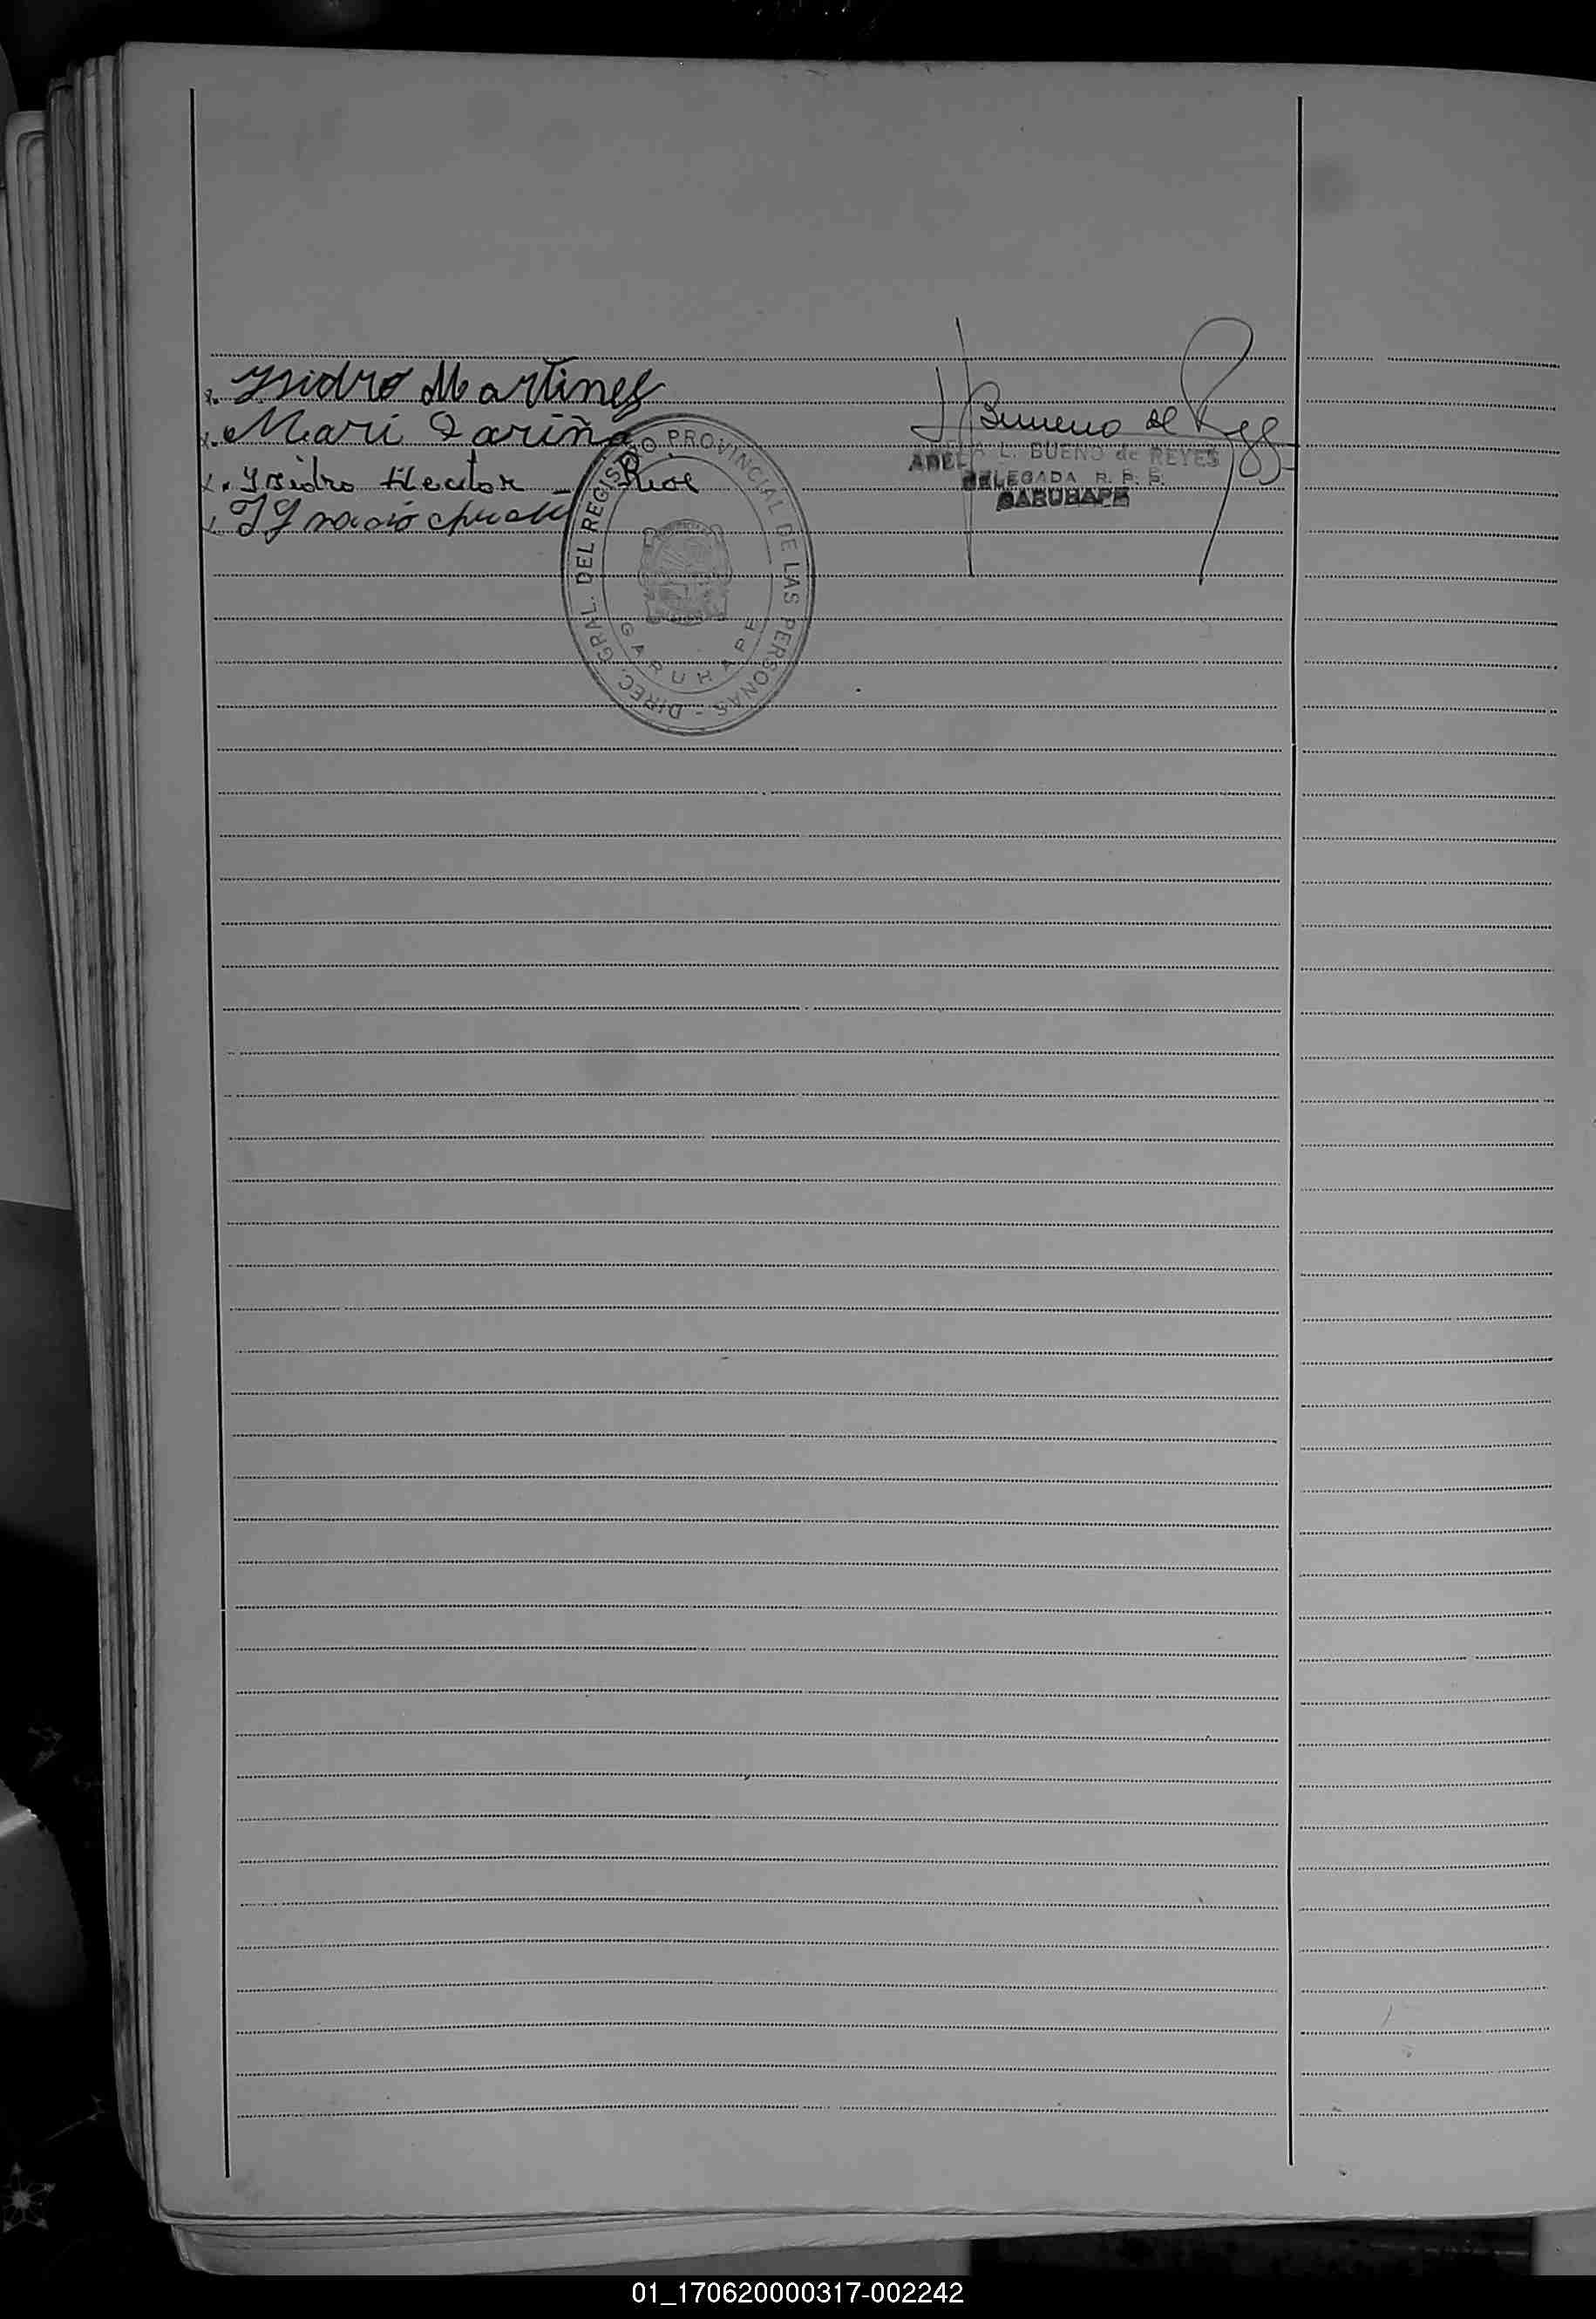 x. Isidro Martinez
x. Mari Fariña
x. Ysidro Hector - Rios
x. IGnacio
Bueno de Reyes
ADELA L. BUENO de REYES
DELEGADA R. P. P.
GARUHAPE
DIREC. GRAL. DEL REGISTRO PROVINCIAL DE LAS PERSONAS -
GARUHAPE
01_170620000317-002242